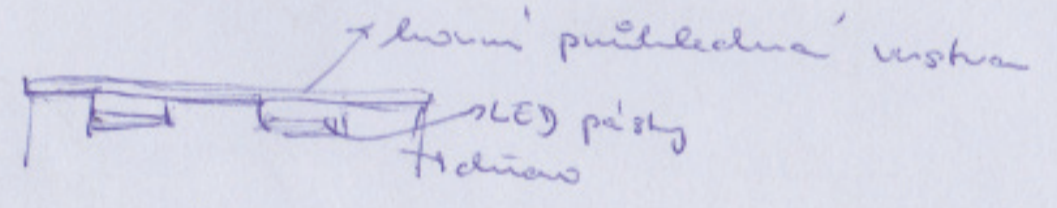 horní průhledná vrstva
LED pásky